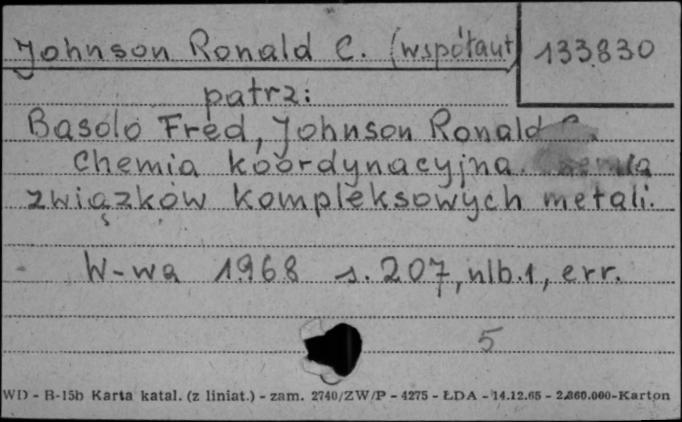 Johnson Ronald C. (współaut) 133830
patrz:
Basolo Fred, Johnson Ronald C.
Chemia koordynacyjna. Chemia
związków kompleksowych metali.
W-wa 1968 s. 207, nlb. 1, err.
5
WD - B-15b Karta katal. (z liniat.) - zam. 2740/ZW/P - 4275 - ŁDA - 14.12.65 - 2.860.000-Karton